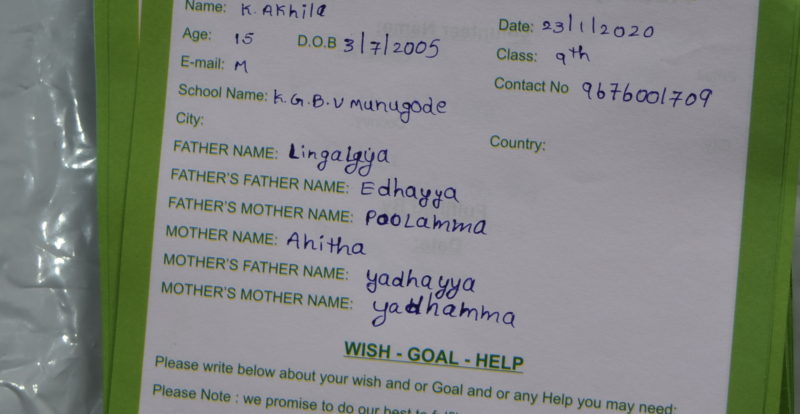 Name: K. AKhila
Date: 23/1/2020
Age: 15 D.O.B 3/7/2005
Class: 9th
E-mail: M
Contact No 9676001709
School Name: K.G.B.V Munugode
City:
Country:
FATHER NAME: Lingaigya
FATHER'S FATHER NAME: Edhayya
FATHER'S MOTHER NAME: POOLamma
MOTHER NAME: Anitha
MOTHER'S FATHER NAME: yadhayya
MOTHER'S MOTHER NAME: yadhamma
WISH - GOAL - HELP
Please write below about your wish and or Goal and or any Help you may need:
Please Note : we promise to do our best to